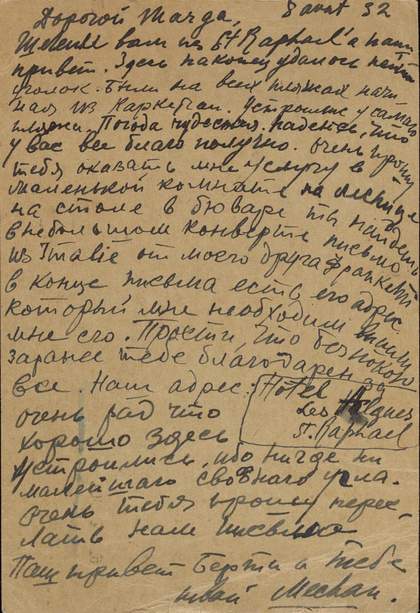 Дорогой Магда, 8 août 32
Шлем вам из St Raphael'а наш
привет. Здесь наконец удалось найти
уголок. Были на всех пляжах начи
ная из
пляжа. Погода чудесная. надеюсь, что
у вас все благополучно. очень прошу
тебя оказать мне услугу в
маленькой комнате на лестнице
на столе в бюваре ты найдешь
в небольшом конверте письмо
из Italie от моего друга
в конце письма есть его адрес
который мне необходим
мне его. Прости, что беспокою
заранее тебе благодарен за
все. Наш адрес: Hotel
очень рад что Les Algues
хорошо здесь St. Raphael
устроились, ибо нигде ни
малейшаго свободнаго угла.
очень тебя прошу перес
лать нам письмо
Наш привет Берти и тебе
твой